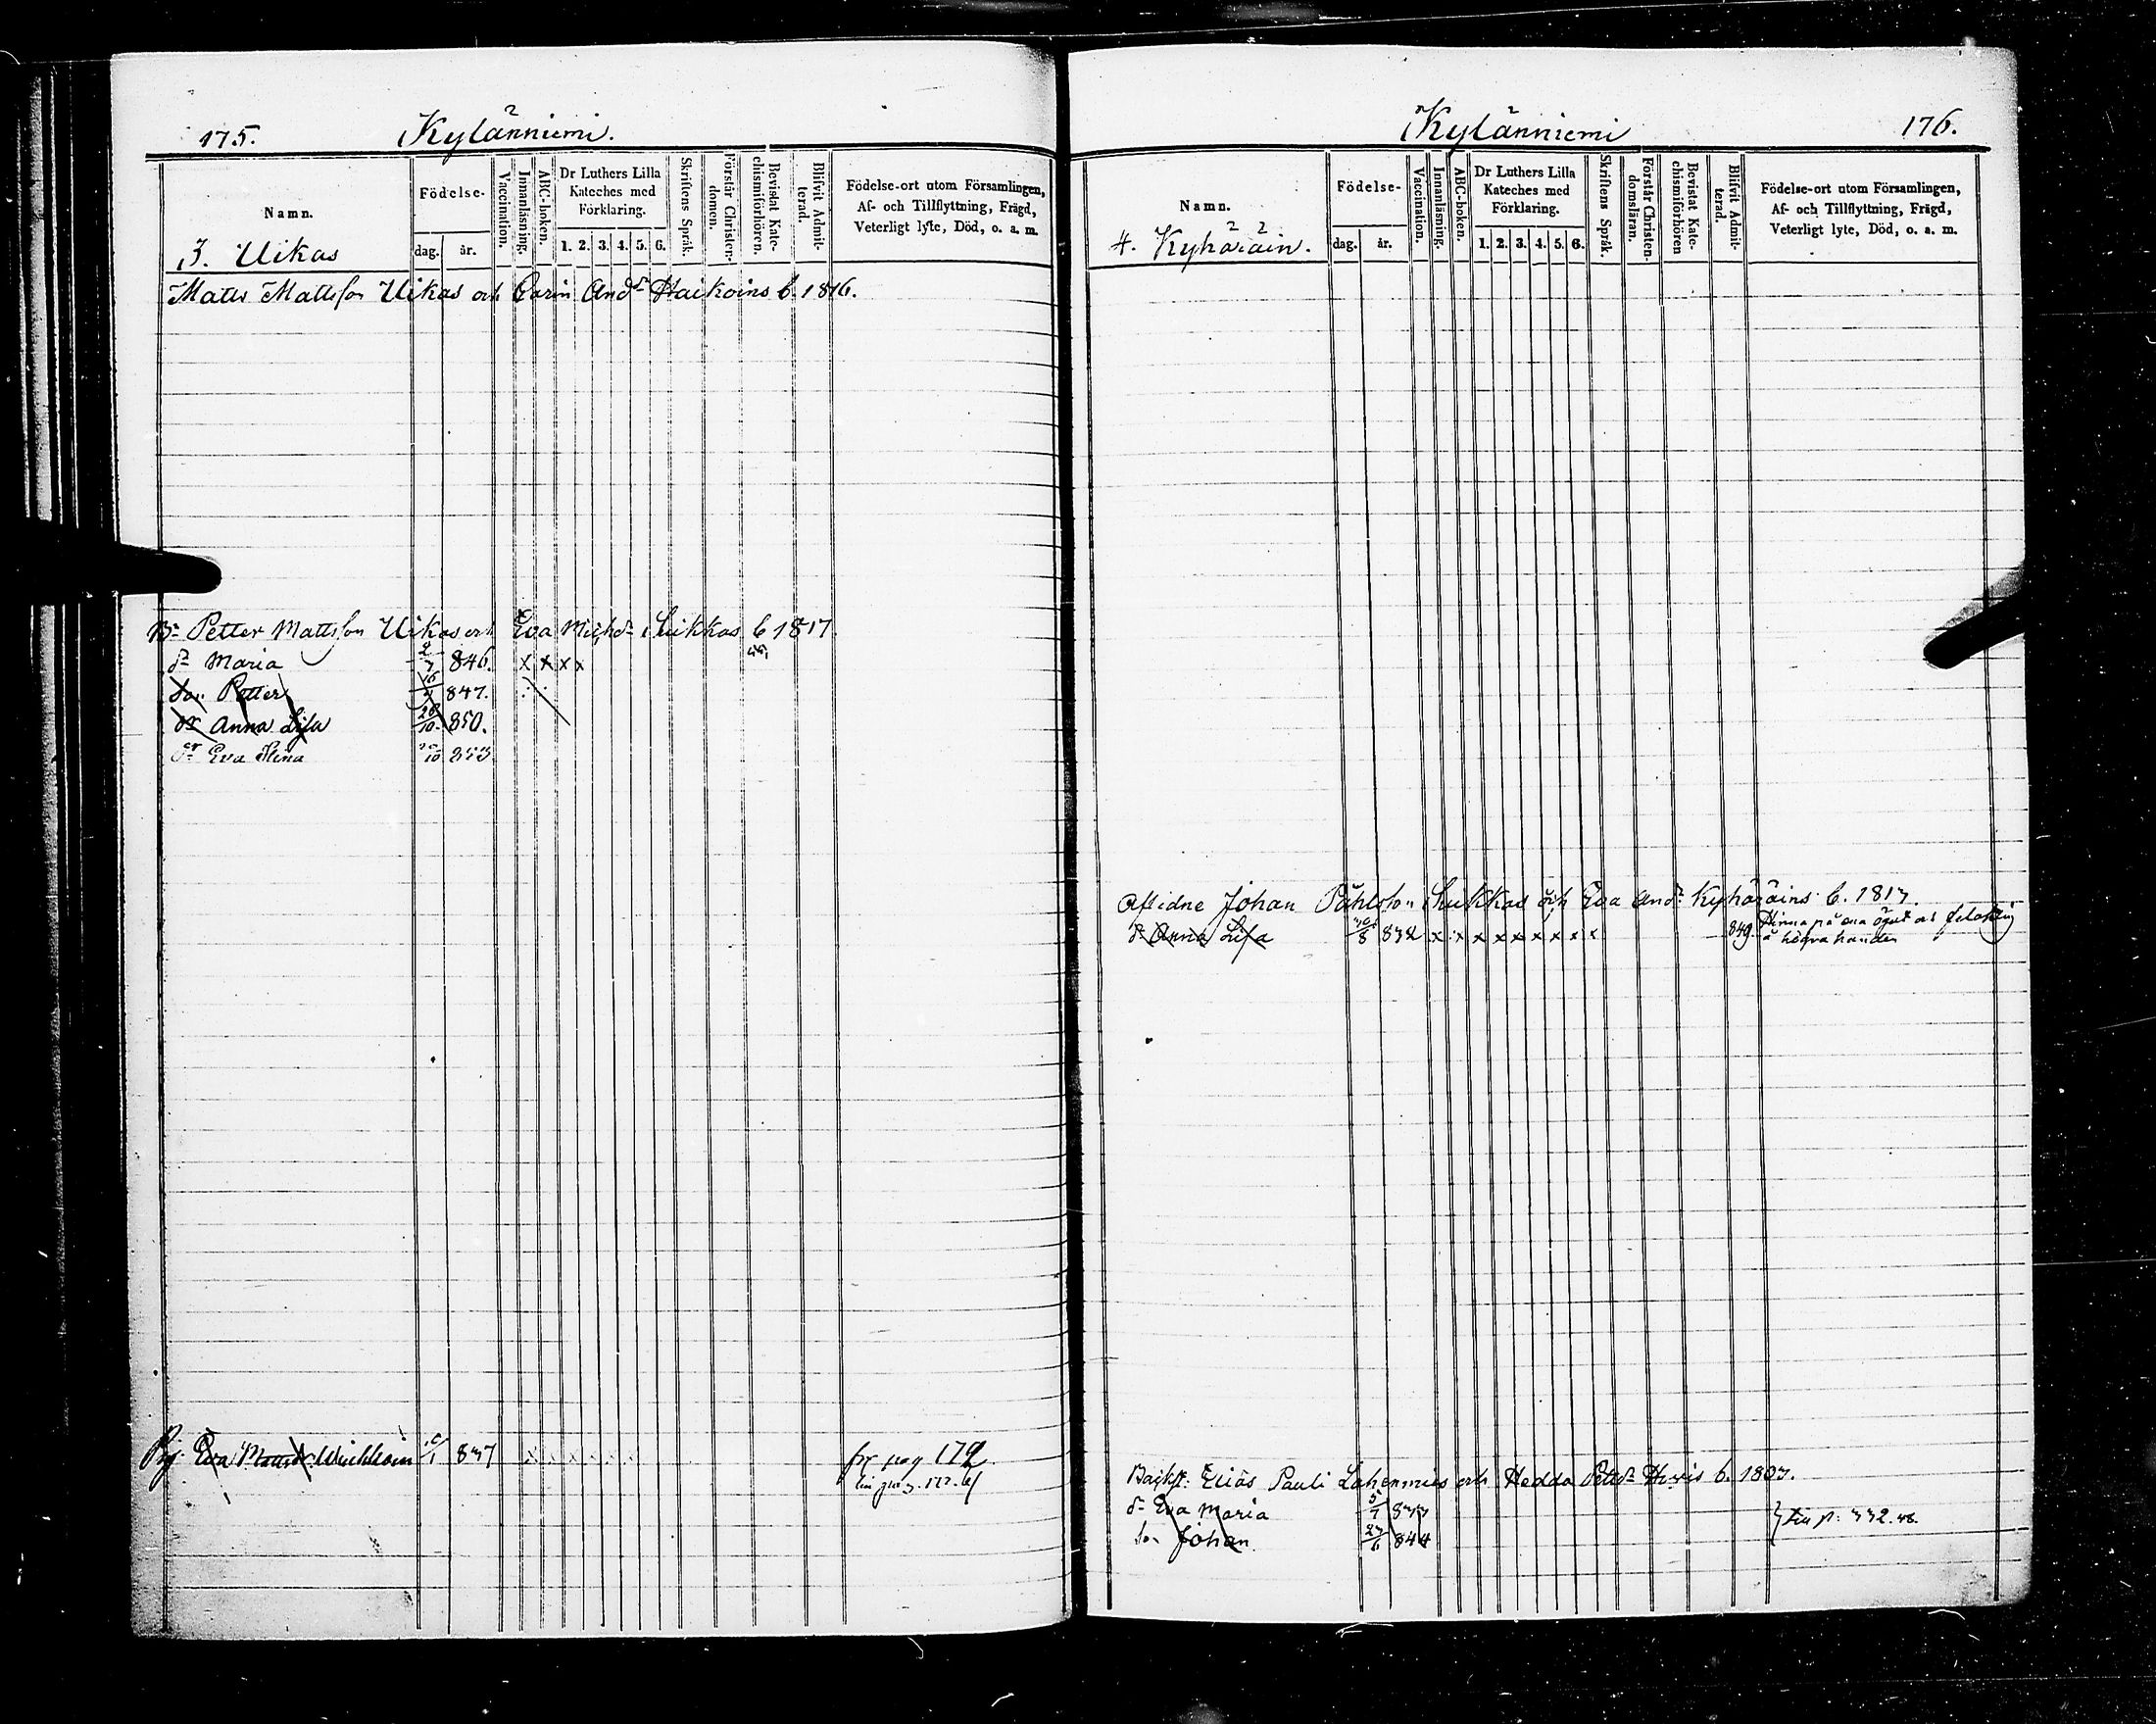 175. Kylänniemi.
Namn.
Födelse-
dag. år.
Vaccination.
Innanläsning.
ABC-boken.
Dr Luthers Lilla Kateches med Förklaring.
1. 2. 3. 4. 5. 6.
Skriftens Språk.
Förstår Christen-domen.
Bevistat Kate-chismiförhören.
Blifvit Admit-terad.
Födelse-ort utom Församlingen,
Af- och Tillflyttning, Frägd,
Veterligt lyte, Död, o. a. m.
3. Uikas
Matts Mattsson Uikas och Carin Andr Haikoins b. 1816.
Br Petter Mattsson Uikas och Eva Michdr Suikkas b 1817
dr Maria 2/7 846. x x x x
son Petter 847.
dr Anna Lisa 28/10 850.
dr Eva Stina /10
Eva 837 fr pag 172
Kylänniemi 176.
Namn.
Födelse-
dag. år.
Vaccination.
Innanläsning.
ABC-boken.
Dr Luthers Lilla Kateches med Förklaring.
1. 2. 3. 4. 5. 6.
Skriftens Språk.
Förstår Christen-domsläran.
Bevistat Kate-chismiförhören
Blifvit Admit-terad.
Födelse-ort utom Församlingen,
Af- och Tillflyttning, Frägd,
Veterligt lyte, Död, o. a. m.
4. Kyhäräin.
Aflidne Johan Påhlson Suikkas och Eva Andr Kyhäräins b. 1817.
dr Anna Lisa /8 832 x x x x x x x x x 849 Hinna på ena ögat och
å högra handen
Elias Pauli Lahenmies och Hedda Petdr b. 1807.
dr Eva Maria
son Johan 844